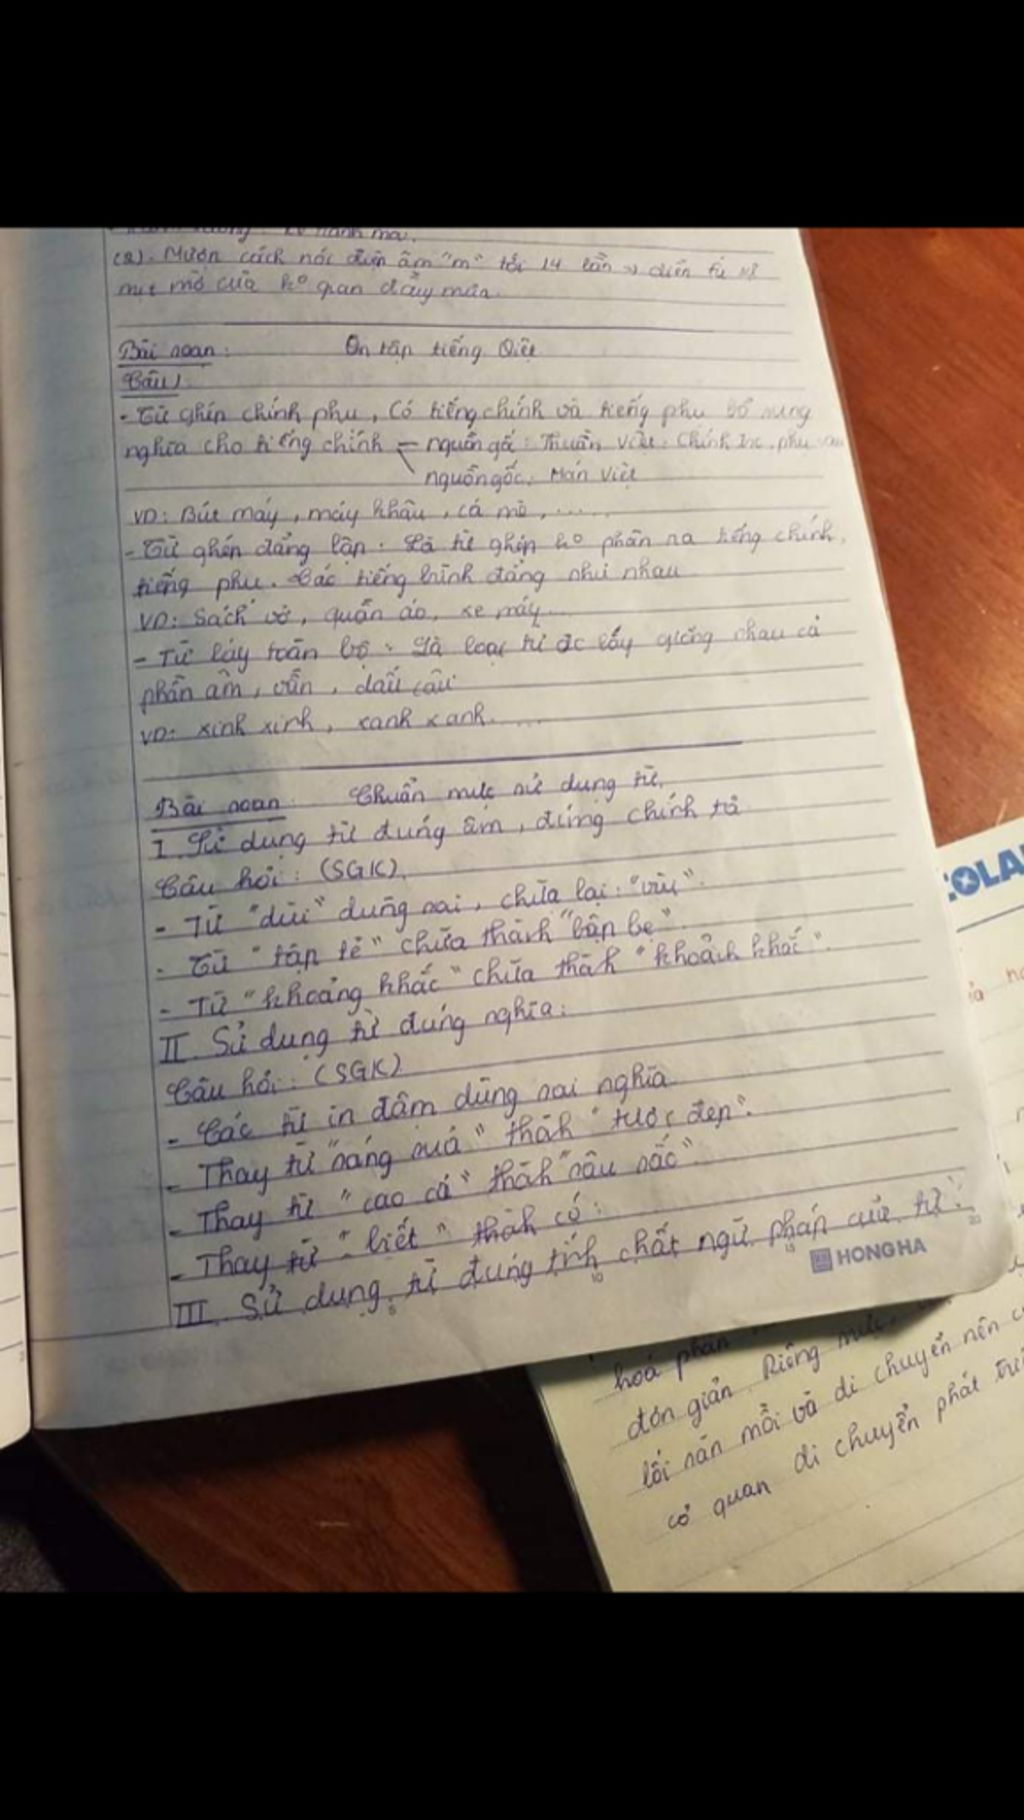 (2). Mượn cách nói điệp âm "m" tới 14 lần → diễn tả sự
mịt mờ của ko gian đầy mưa.
Bài soạn: Ôn tập tiếng Việt
Câu 1
- Từ ghép chính phụ, Có tiếng chính và tiếng phụ bổ sung
nghĩa cho tiếng chính nguồn gố: Thuần Việt: Chính trc, phụ sau
nguồn gốc: Hán Việt
VD: Bút máy, máy khâu, cá mè, ......
- Từ ghép đẳng lập: Là từ ghép ko phân ra tiếng chính,
tiếng phụ. Các tiếng bình đẳng như nhau
VD: Sách vở, quần áo, xe máy...
- Từ láy toàn bộ: Là loại từ đc láy giống nhau cả
phần âm, vần, dấu câu
VD: xinh xinh, xanh xanh......
Bài soạn: Chuẩn mực sử dụng từ.
I. Sử dụng từ đúng âm, đúng chính tả
Câu hỏi: (SGK).
- Từ "dùi" dùng sai, chữa lại: "vùi".
- Từ "tập tẹ" chữa thành "bập bẹ".
- Từ "khoảng khắc" chữa thành "khoảnh khắc".
II. Sử dụng từ đúng nghĩa:
Câu hỏi: (SGK)
- Các từ in đậm dùng sai nghĩa
- Thay từ "sáng sủa" thành "tươi đẹp".
- Thay từ "cao cả" thành "sâu sắc".
- Thay từ "biết" thành có:
III. Sử dụng từ đúng tính chất ngữ pháp của từ:
5 10 15 20
HONG HA
hoá phân
đơn giản. Riêng mực
lối săn mồi và di chuyển nên c
cơ quan di chuyển phát tri